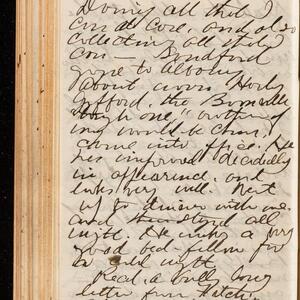 Doing all that I
can at care, and also
collecting all that I
can — Bondford
gone to Albany
about noon. Hody
Gifford, the
"tough one," brother of
my would be chum,
came into office. He
has improved decidedly
in appearance, and
looks very well. Went
up to dinner with me.
and all
night. He makes a very
good bed fellow for
a cold night.
Read a long
letter from